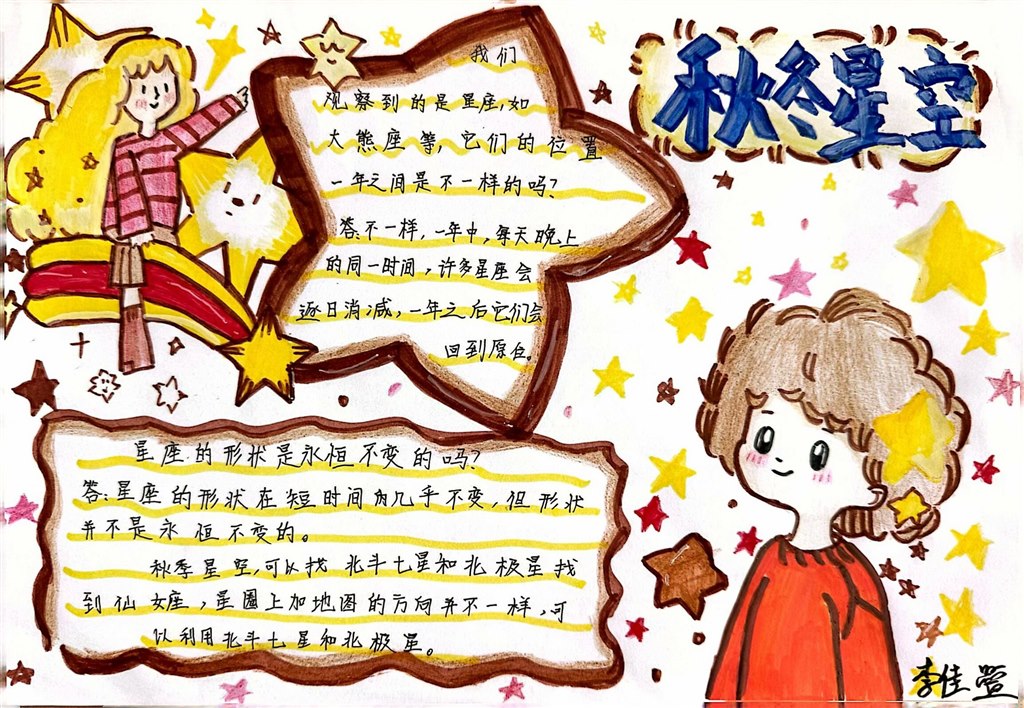 秋冬星空
我们
观察到的是星座,如
大熊座等,它们的位置
一年之间是不一样的吗?
答:不一样,一年中,每天晚上
的同一时间,许多星座会
逐日消减,一年之后它们会
回到原位。
星座的形状是永恒不变的吗?
答:星座的形状在短时间内几乎不变,但形状
并不是永恒不变的。
秋季星空,可以找北斗七星和北极星找
到仙女座,星图上加地图的方向并不一样,可
以利用北斗七星和北极星。
李佳萱